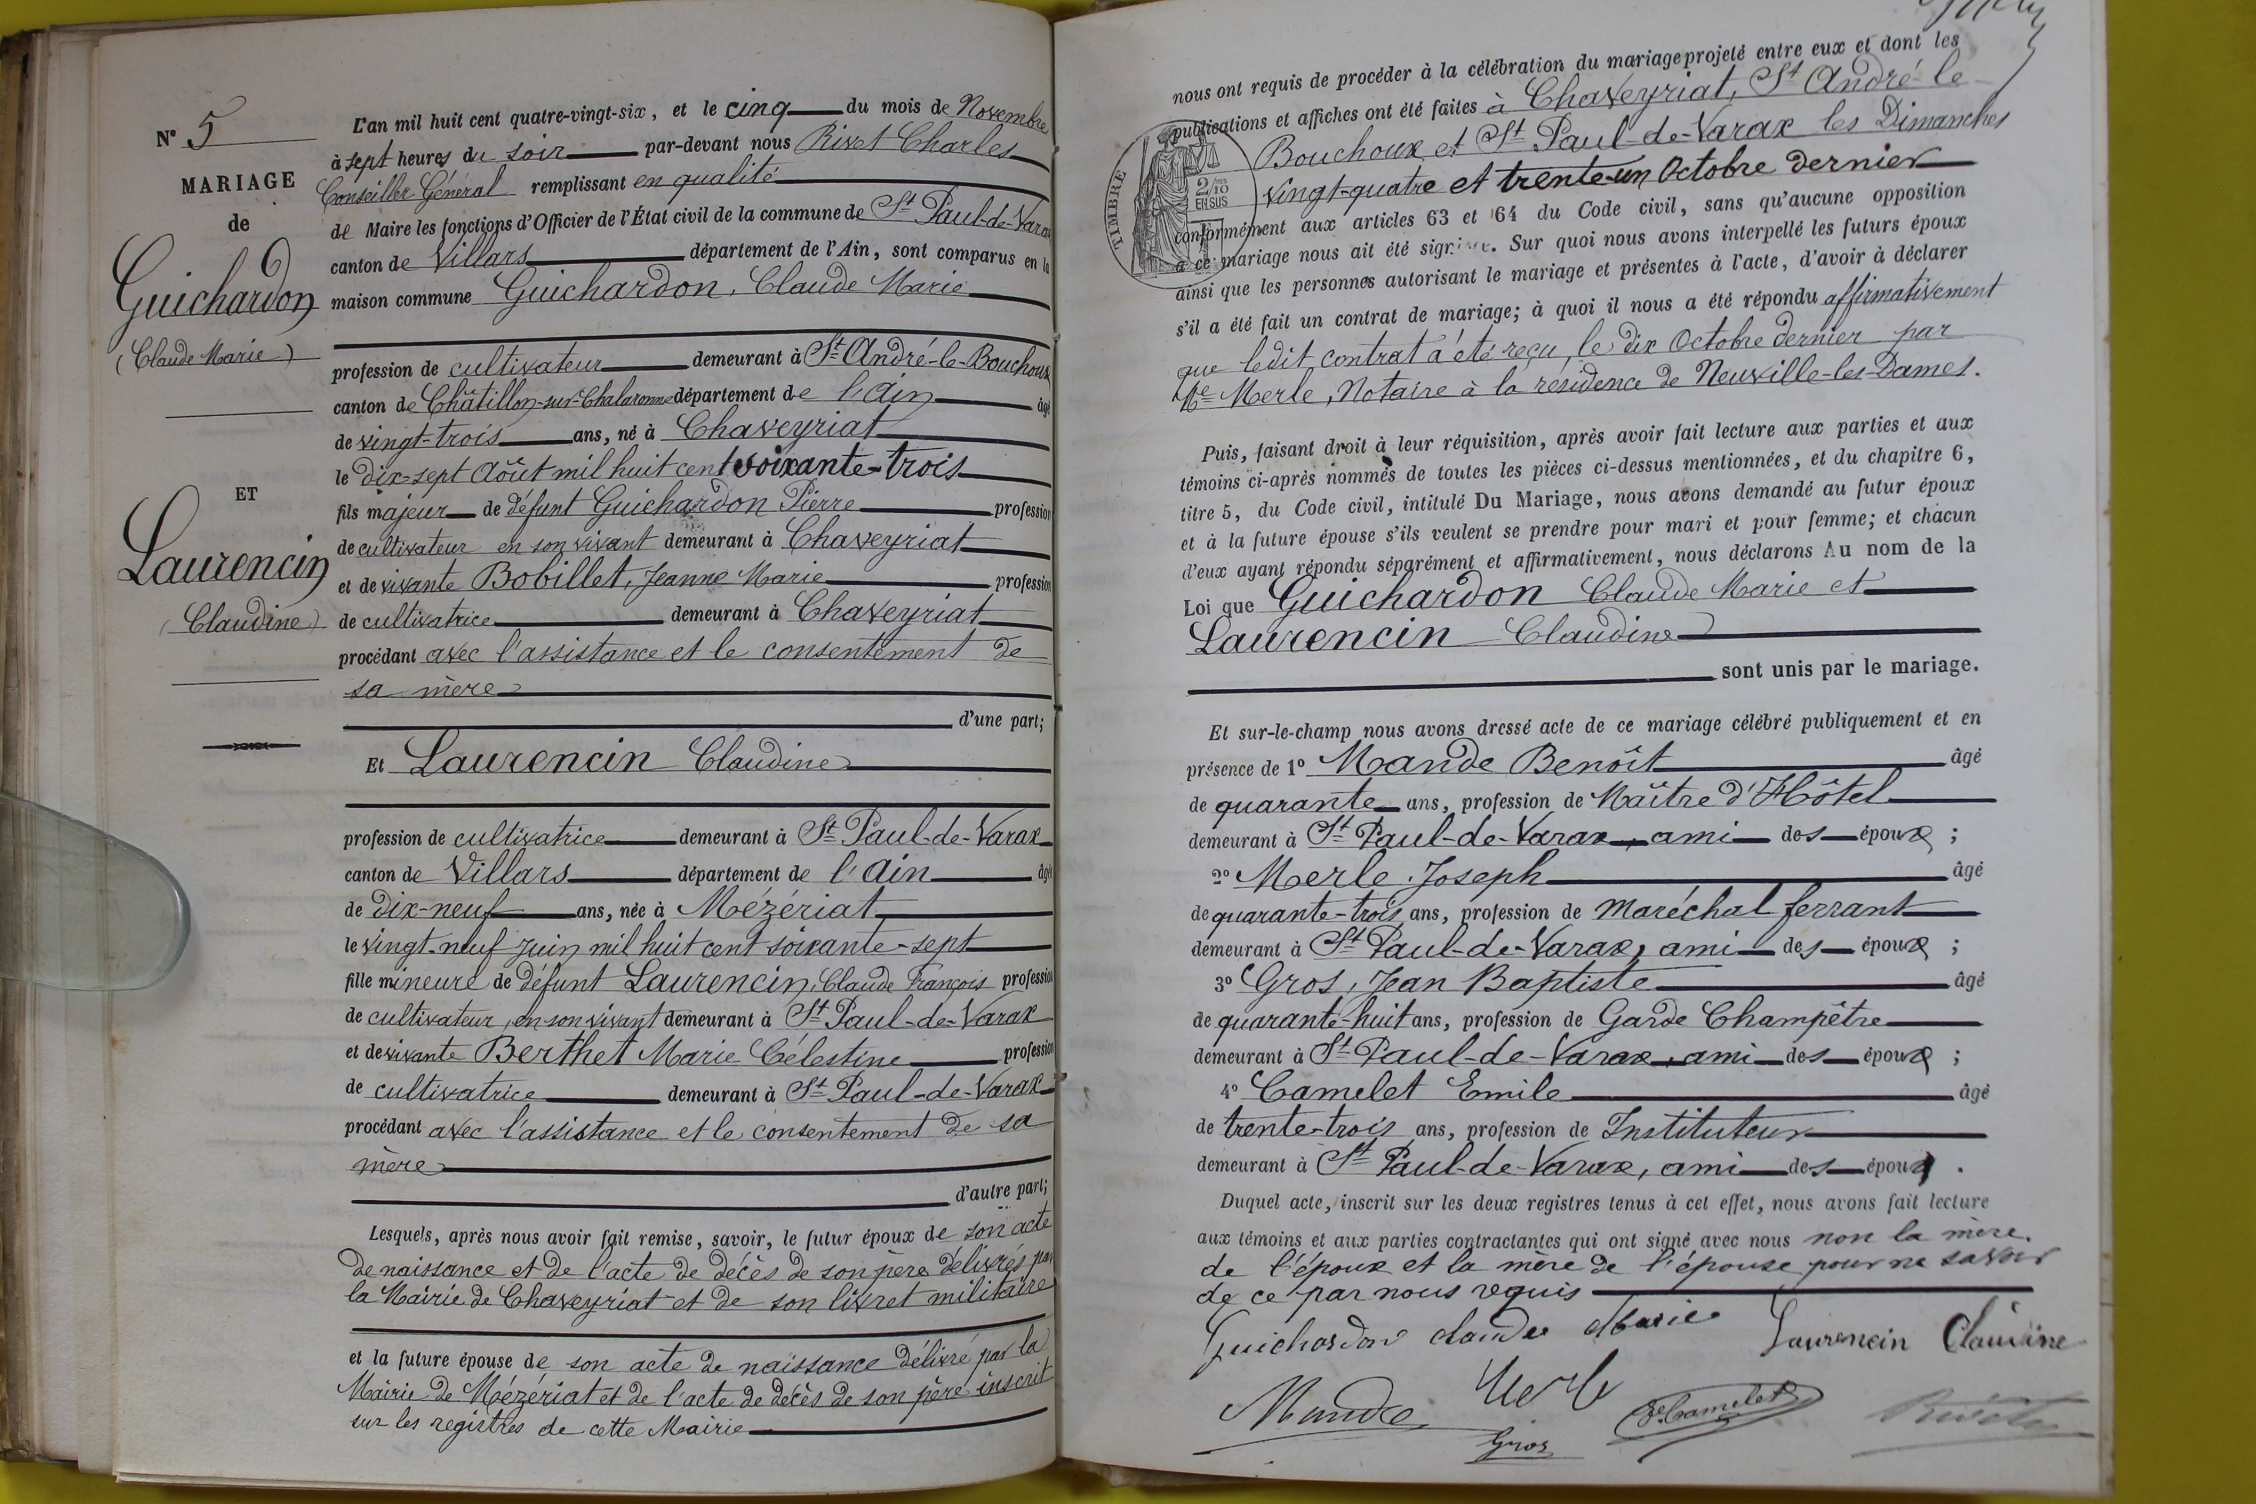 N° 5
MARIAGE
de
Guichardon
(Claude Marie)
ET
Laurencin
(Claudine)
L'an mil huit cent quatre-vingt-six, et le cinq du mois de Novembre
à sept heures du soir par-devant nous Rivet Charles
Conseiller Général remplissant en qualité
de Maire les fonctions d'Officier de l'État civil de la commune de St Paul-de-Varax
canton de Villars département de l'Ain, sont comparus en la
maison commune Guichardon, Claude Marie
profession de cultivateur demeurant à St André-le-Bouchoux
canton de Châtillon-sur-Chalaronne département de l'Ain âgé
de vingt-trois ans, né à Chaveyriat
le dix-sept Août mil huit cent soixante-trois
fils majeur de défunt Guichardon Pierre profession
de cultivateur en son vivant demeurant à Chaveyriat
et de vivante Bobillet, Jeanne Marie profession
de cultivatrice demeurant à Chaveyriat
procédant avec l'assistance et le consentement de
sa mère
d'une part;
Et Laurencin Claudine
profession de cultivatrice demeurant à St Paul-de-Varax
canton de Villars département de l'Ain âgée
de dix-neuf ans, née à Mézériat
le vingt-neuf Juin mil huit cent soixante-sept
fille mineure de défunt Laurencin, Claude François profession
de cultivateur, en son vivant demeurant à St Paul-de-Varax
et de vivante Berthet Marie Célestine profession
de cultivatrice demeurant à St Paul-de-Varax
procédant avec l'assistance et le consentement de sa
mère
d'autre part;
Lesquels, après nous avoir fait remise, savoir, le futur époux de son acte
de naissance et de l'acte de décès de son père délivrés par
la Mairie de Chaveyriat et de son livret militaire
et la future épouse de son acte de naissance délivré par la
Mairie de Mézériat et de l'acte de décès de son père inscrit
sur les registres de cette Mairie
nous ont requis de procéder à la célébration du mariage projeté entre eux et dont les
publications et affiches ont été faites à Chaveyriat, St André-le-
Bouchoux et St Paul-de-Varax les Dimanches
vingt-quatre et trente-un Octobre dernier
TIMBRE
2/10
EN SUS
conformément aux articles 63 et 64 du Code civil, sans qu'aucune opposition
à ce mariage nous ait été signifiée. Sur quoi nous avons interpellé les futurs époux
ainsi que les personnes autorisant le mariage et présentes à l'acte, d'avoir à déclarer
s'il a été fait un contrat de mariage; à quoi il nous a été répondu affirmativement
que ledit contrat a été reçu, le dix Octobre dernier par
Me Merle, Notaire à la résidence de Neuville-les-Dames.
Puis, faisant droit à leur réquisition, après avoir fait lecture aux parties et aux
témoins ci-après nommés de toutes les pièces ci-dessus mentionnées, et du chapitre 6,
titre 5, du Code civil, intitulé Du Mariage, nous avons demandé au futur époux
et à la future épouse s'ils veulent se prendre pour mari et pour femme; et chacun
d'eux ayant répondu séparément et affirmativement, nous déclarons Au nom de la
Loi que Guichardon Claude Marie et
Laurencin Claudine
sont unis par le mariage.
Et sur-le-champ nous avons dressé acte de ce mariage célébré publiquement et en
présence de 1° Mande Benoît âgé
de quarante ans, profession de Maître d'Hôtel
demeurant à St Paul-de-Varax, ami des époux;
2° Merle Joseph âgé
de quarante-trois ans, profession de Maréchal ferrant
demeurant à St Paul-de-Varax, ami des époux;
3° Gros, Jean Baptiste âgé
de quarante-huit ans, profession de Garde Champêtre
demeurant à St Paul-de-Varax, ami des époux;
4° Camelet Emile âgé
de trente-trois ans, profession de Instituteur
demeurant à St Paul-de-Varax, ami des époux.
Duquel acte, inscrit sur les deux registres tenus à cet effet, nous avons fait lecture
aux témoins et aux parties contractantes qui ont signé avec nous non la mère
de l'époux et la mère de l'épouse pour ne savoir
de ce par nous requis
Guichardon Claude Marie Laurencin Claudine
Mande Merle E. Camelet
Gros